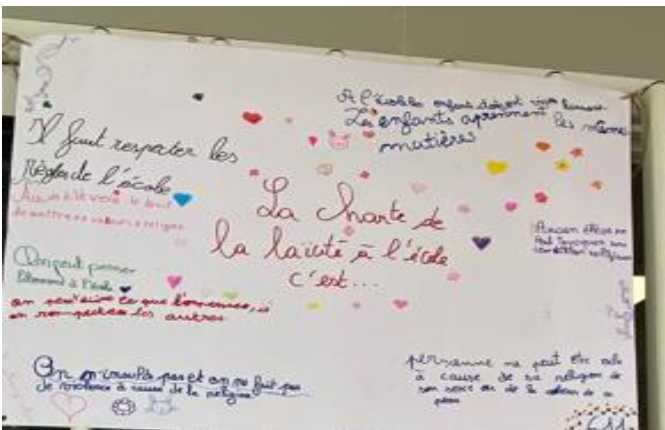 A l'école les enfants doivent
Les enfants aprennent les même
matières
Il faut respecter les
Règles de l'école
Aucun élève le droit
de mettre en valeurs religion
La Charte de
la laïcité à l'école
c'est...
Aucun élève ne
peut invoquer une
conviction religieuse
On peut penser
librement à l'école
on peut dire ce que l'on pense, si
on respecte les autres
On n'insulte pas et on ne fait pas
de violence à cause de la religion
personne ne peut être
à cause de sa religion de
son sexe ou de la couleur de sa
peau